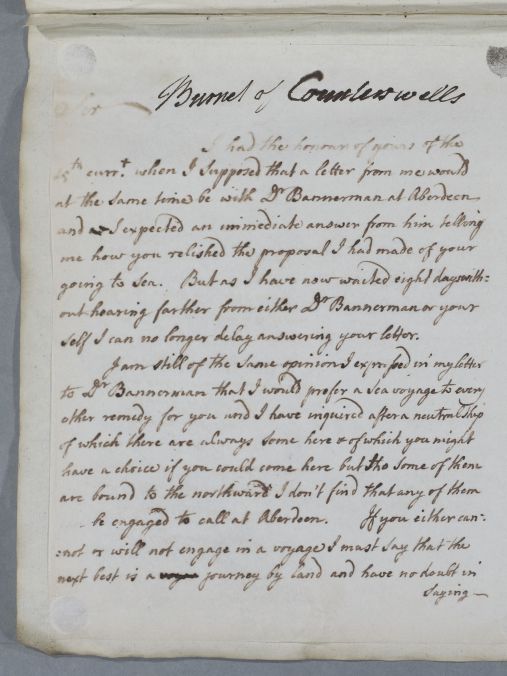 Burnet of Counteswells
Sir
I had the honour of yours of the
15th currt. when I supposed that a letter from me would
at the same time be with Dr Bannerman at Aberdeen
and I expected an immediate answer from him telling
me how you relished the proposal I had made of your
going to Sea. But as I have now waited eight days with=
out hearing farther from either Dr Bannerman or your
self I can no longer delay answering your letter.
I am still of the same opinion I expressed in my letter
to Dr Bannerman that I would prefer a sea voyage to every
other remedy for you and I have inquired after a neutral Ship
of which there are always some here & of which you might
have a choice if you could come here but tho some of them
are bound to the northward I don't find that any of them
be engaged to call at Aberdeen. If you either can=
=not or will not engage in a voyage I must say that the
next best is a journey by land and have no doubt in
saying